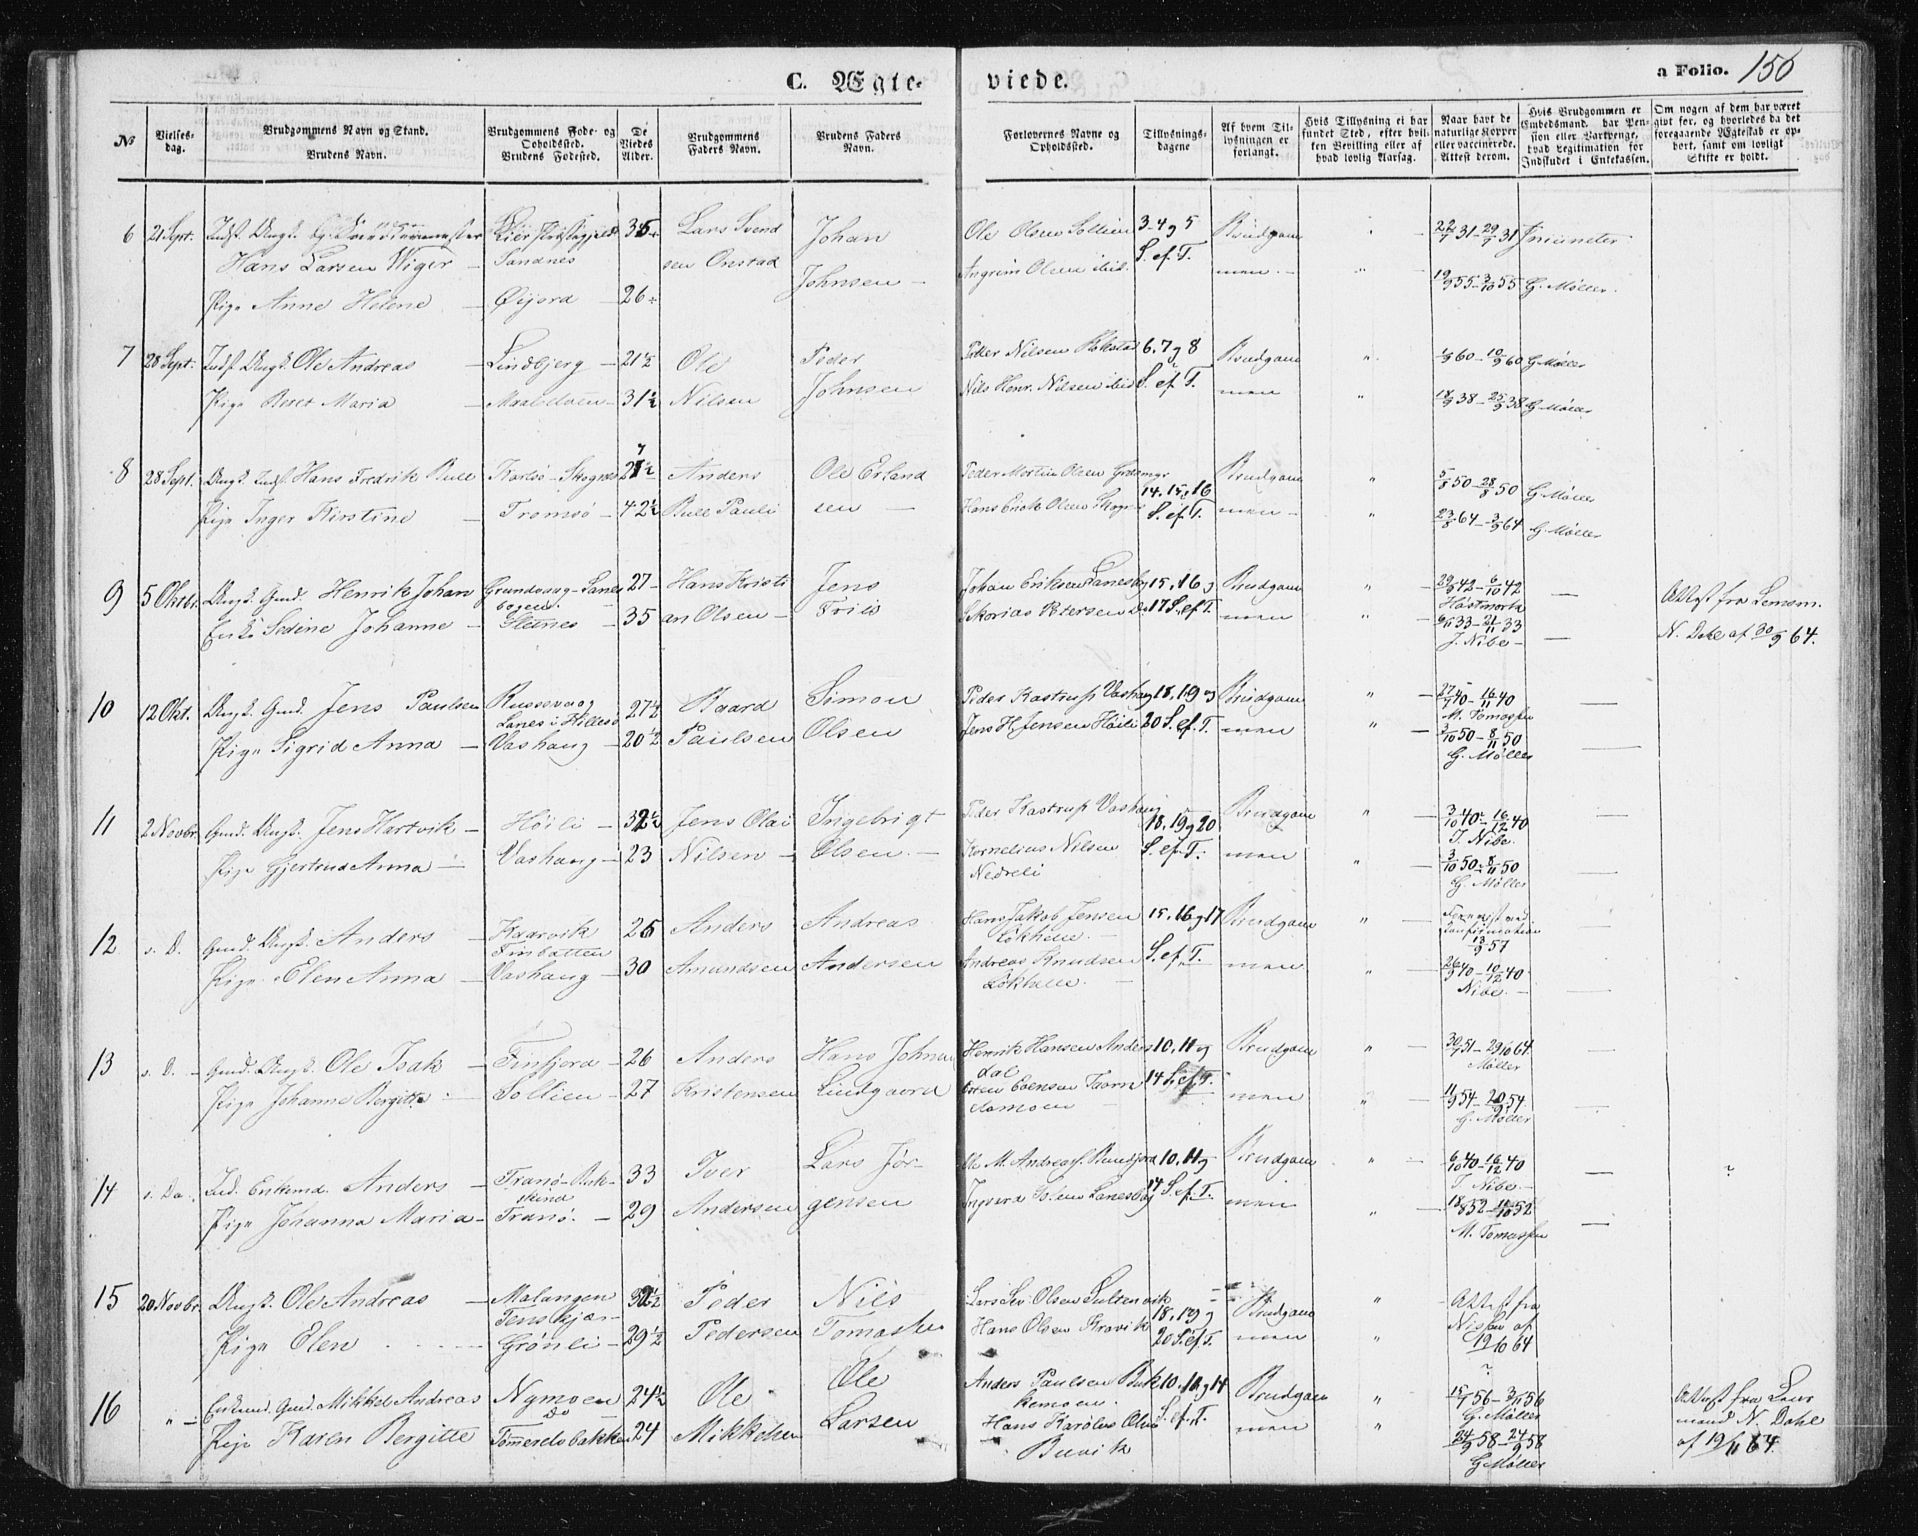 C. Ægte-
viede.
a Folio. 150
№
Vielses-
dag.
Brudgommens Navn og Stand.
Brudens Navn.
Brudgommens Føde- og
Opholdssted.
Brudens Fødested.
De
Viedes
Alder.
Brudgommens
Faders Navn.
Brudens Faders
Navn.
Forlovernes Navne og
Opholdssted.
Tillysnings-
dagene
Af hvem Til-
lysningen er
forlangt.
Hvis Tillysning ei har
fundet Sted, efter hvil-
ken Bevilling eller af
hvad lovlig Aarsag.
Naar havt de
naturlige Kopper
eller vaccinerede.
Attest derom.
Hvis Brudgommen er
Embedsmand, har Pen-
sion eller Vartpenge,
hvad Legitimation for
Indskudet i Enkekassen.
Om nogen af dem har været
gift før, og hvorledes da det
foregaaende Ægteskab er op-
hørt, samt om lovligt
Skifte er holdt.
6 21 Sept.
Hans Larsen Wiger
Sandnes
35
Lars Svend
sen Onstad
Johan
Johnsen
Ole Olsen Sollien
Angrim Olsen ibid.
3-4 og 5
S. ef. T.
Brudgom
men
22/7 31 - 29/7 31
Pige Anne Helene
Øijord
26
19/9 55 - 3/10 55 G. Møller.
7 28 Sept. Indf. Ungk. Ole Andreas
Lindbjerg
21½
Ole
Nilsen
Peder
Johnsen
Peder Nilsen
Nils Henr. Nilsen ibid
6. 7 og 8
S. ef. T.
Brudgom
men
60 - 10/9 60 G Møller
Pige Beret Maria
31½
18/9 38 - 25/9 38 G Møller
8 28 Sept. Ungk. Indf. Hans Fredrik Bull
Karlsö - Skognes
Anders
Bull Pauli
Ole Erland
sen
Peder Morten Olsen
Hans Olsen
14. 15. 16
S. ef. T.
Brudgom
men
5/8 50 - 28/8 50 G. Møller
Pige Inger Kirstine
Tromsö
42½
23/8 64 - 3/9 64 G. Møller
9 5 Oktbr. Ungk. Gmd. Henrik Johan
Grundvaag - Sanes
bogen.
27
Hans Kristi
an Olsen
Jens
Friis
Johan Eriksen Lanesby
Petersen Do
15. 16 og
17 S. ef. T.
Brudgom
men
29/9 42 - 6/10 42
Enke Sedine Johanne
Sletnes
35
33 - 21/11 33
J. Nibe
Attest fra Lensm.
N. Dahl af 30/9 64.
10 12 Okt. Ungk. Gmd. Jens Paulsen
Russevaag
Lanes i Hillesö
27½
Baard
Paulsen
Simon
Olsen
Peder Kastrup Vashaug
Jens H. Jensen Höili
18. 19 og
20 S. ef. T.
Brudgom
men
27/7 40 - 16/11 40
M. Tomassen
Pige Sigrid Anna
Vashaug
20½
3/10 50 - 8/11 50
G. Møller
11 2 Novbr. Gmd. Ungk. Jens Hartvik
Höili
32½
Jens Olai
Nilsen
Ingebrigt
Olsen
Peder Kastrup Vashaug
Kornelius Nilsen
Nedreli
18. 19 og 20
S. ef. T.
Brudgom
men
3/10 40 - 16/12 40
J. Nibe.
Pige Gjertrud Anna
Vashaug
23
3/10 50 - 8/11 50
G. Møller
12 s. D. Gmd. Ungk. Anders
Kaarvik
Finbatten
26
Anders
Amundsen
Andreas
Andersen
Hans Jakob Jensen
Andreas Knudsen
15. 16 og 17
S. ef. T.
Brudgom
men
konfirmation
13/9 57
Pige Elen Anna
Vashaug
30
26/9 40 - 10/12 40
Nibe.
13 s. D. Gmd. Ungk. Ole Isak
Finfjord
26
Anders
Kristensen
Hans Johnsen
Lindgaard
Henrik Hansen Anders
dal
10. 11 og
14 S. ef. T.
Brudgom
men
30/7 51 - 29/10 64.
Møller
Pige Johanne Bergitte
Sollien
27
11/9 54 - 20/9 54
G. Møller
14 s. Da. Ind. Enkemd. Anders
Tranö - Buk-
skind
33
Iver
Andersen
Lars Jör-
gensen
Ole M. Andreass. Rundfjord
Lanesby
10. 11 og
14 S. ef. T.
Brudgom
men
6/10 40 - 16/12 40
J. Nibe.
Pige Johanna Maria
Tranö
29
18/8 52 - 11/10 52
M. Tomassen
15 20 Novbr. Ungk. Ole Andreas
Malangen
Tenskjær
32½
Peder
Pedersen
Nils
Tomassen
Olsen Sultenvik
Hans Olsen Kravik
18. 19 og
20 S. ef. T.
Brudgom
men
Attest fra
Nissen af
19/10 64
Pige Elen
Grönli
29½
16 " Enkemd. Gmd. Mikkel Andreas
Nymoen
Do
24½
Ole
Mikkelsen
Ole
Larsen
Anders Paulsen Buk
kemoen.
Hans Karolus Olsen
Buvik
10. 11 og 14
S. ef. T.
Brudgom
men
15/9 56 - 3/11 56
G. Møller
Pige Karen Bergitte
Tömmerelvbakken
24
24/9 58 - 24/9 58
G Møller
Attest fra Lens
mand N. Dahl
af 19/11 64.